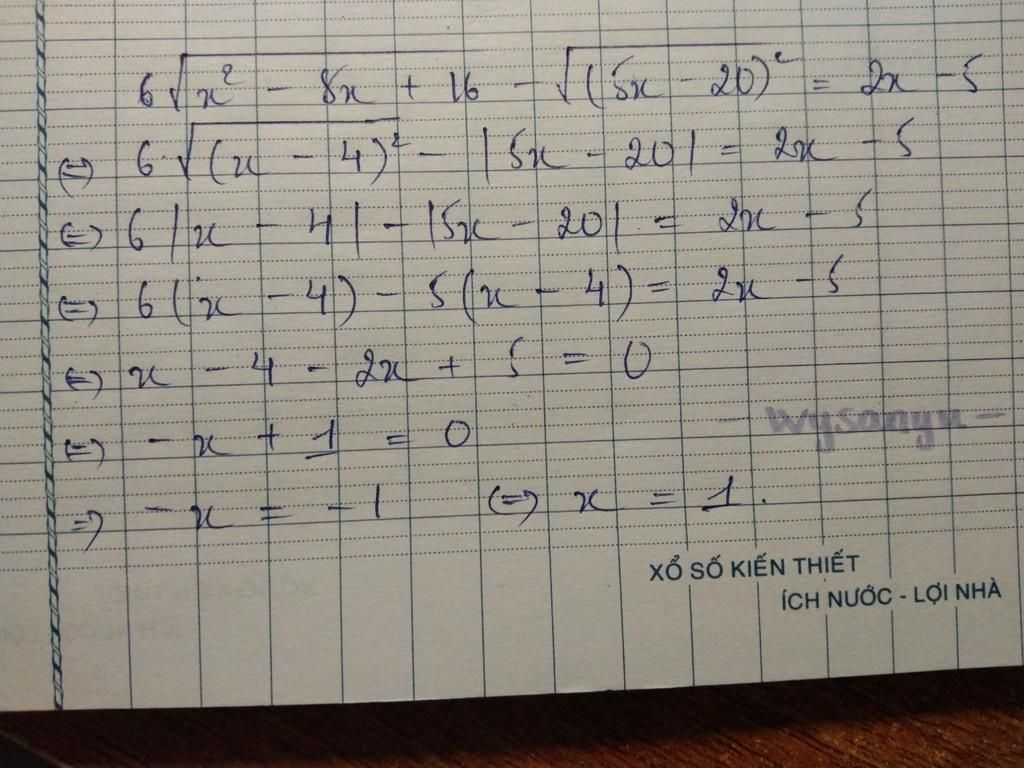 6√(x² - 8x + 16) - √((5x - 20)²) = 2x - 5
⇔ 6√((x - 4)²) - |5x - 20| = 2x - 5
⇔ 6|x - 4| - |5x - 20| = 2x - 5
⇔ 6(x - 4) - 5(x - 4) = 2x - 5
⇔ x - 4 - 2x + 5 = 0
⇔ - x + 1 = 0
- Wysanyu -
⇒ - x = - 1 ⇔ x = 1.
XỔ SỐ KIẾN THIẾT
ÍCH NƯỚC - LỢI NHÀ